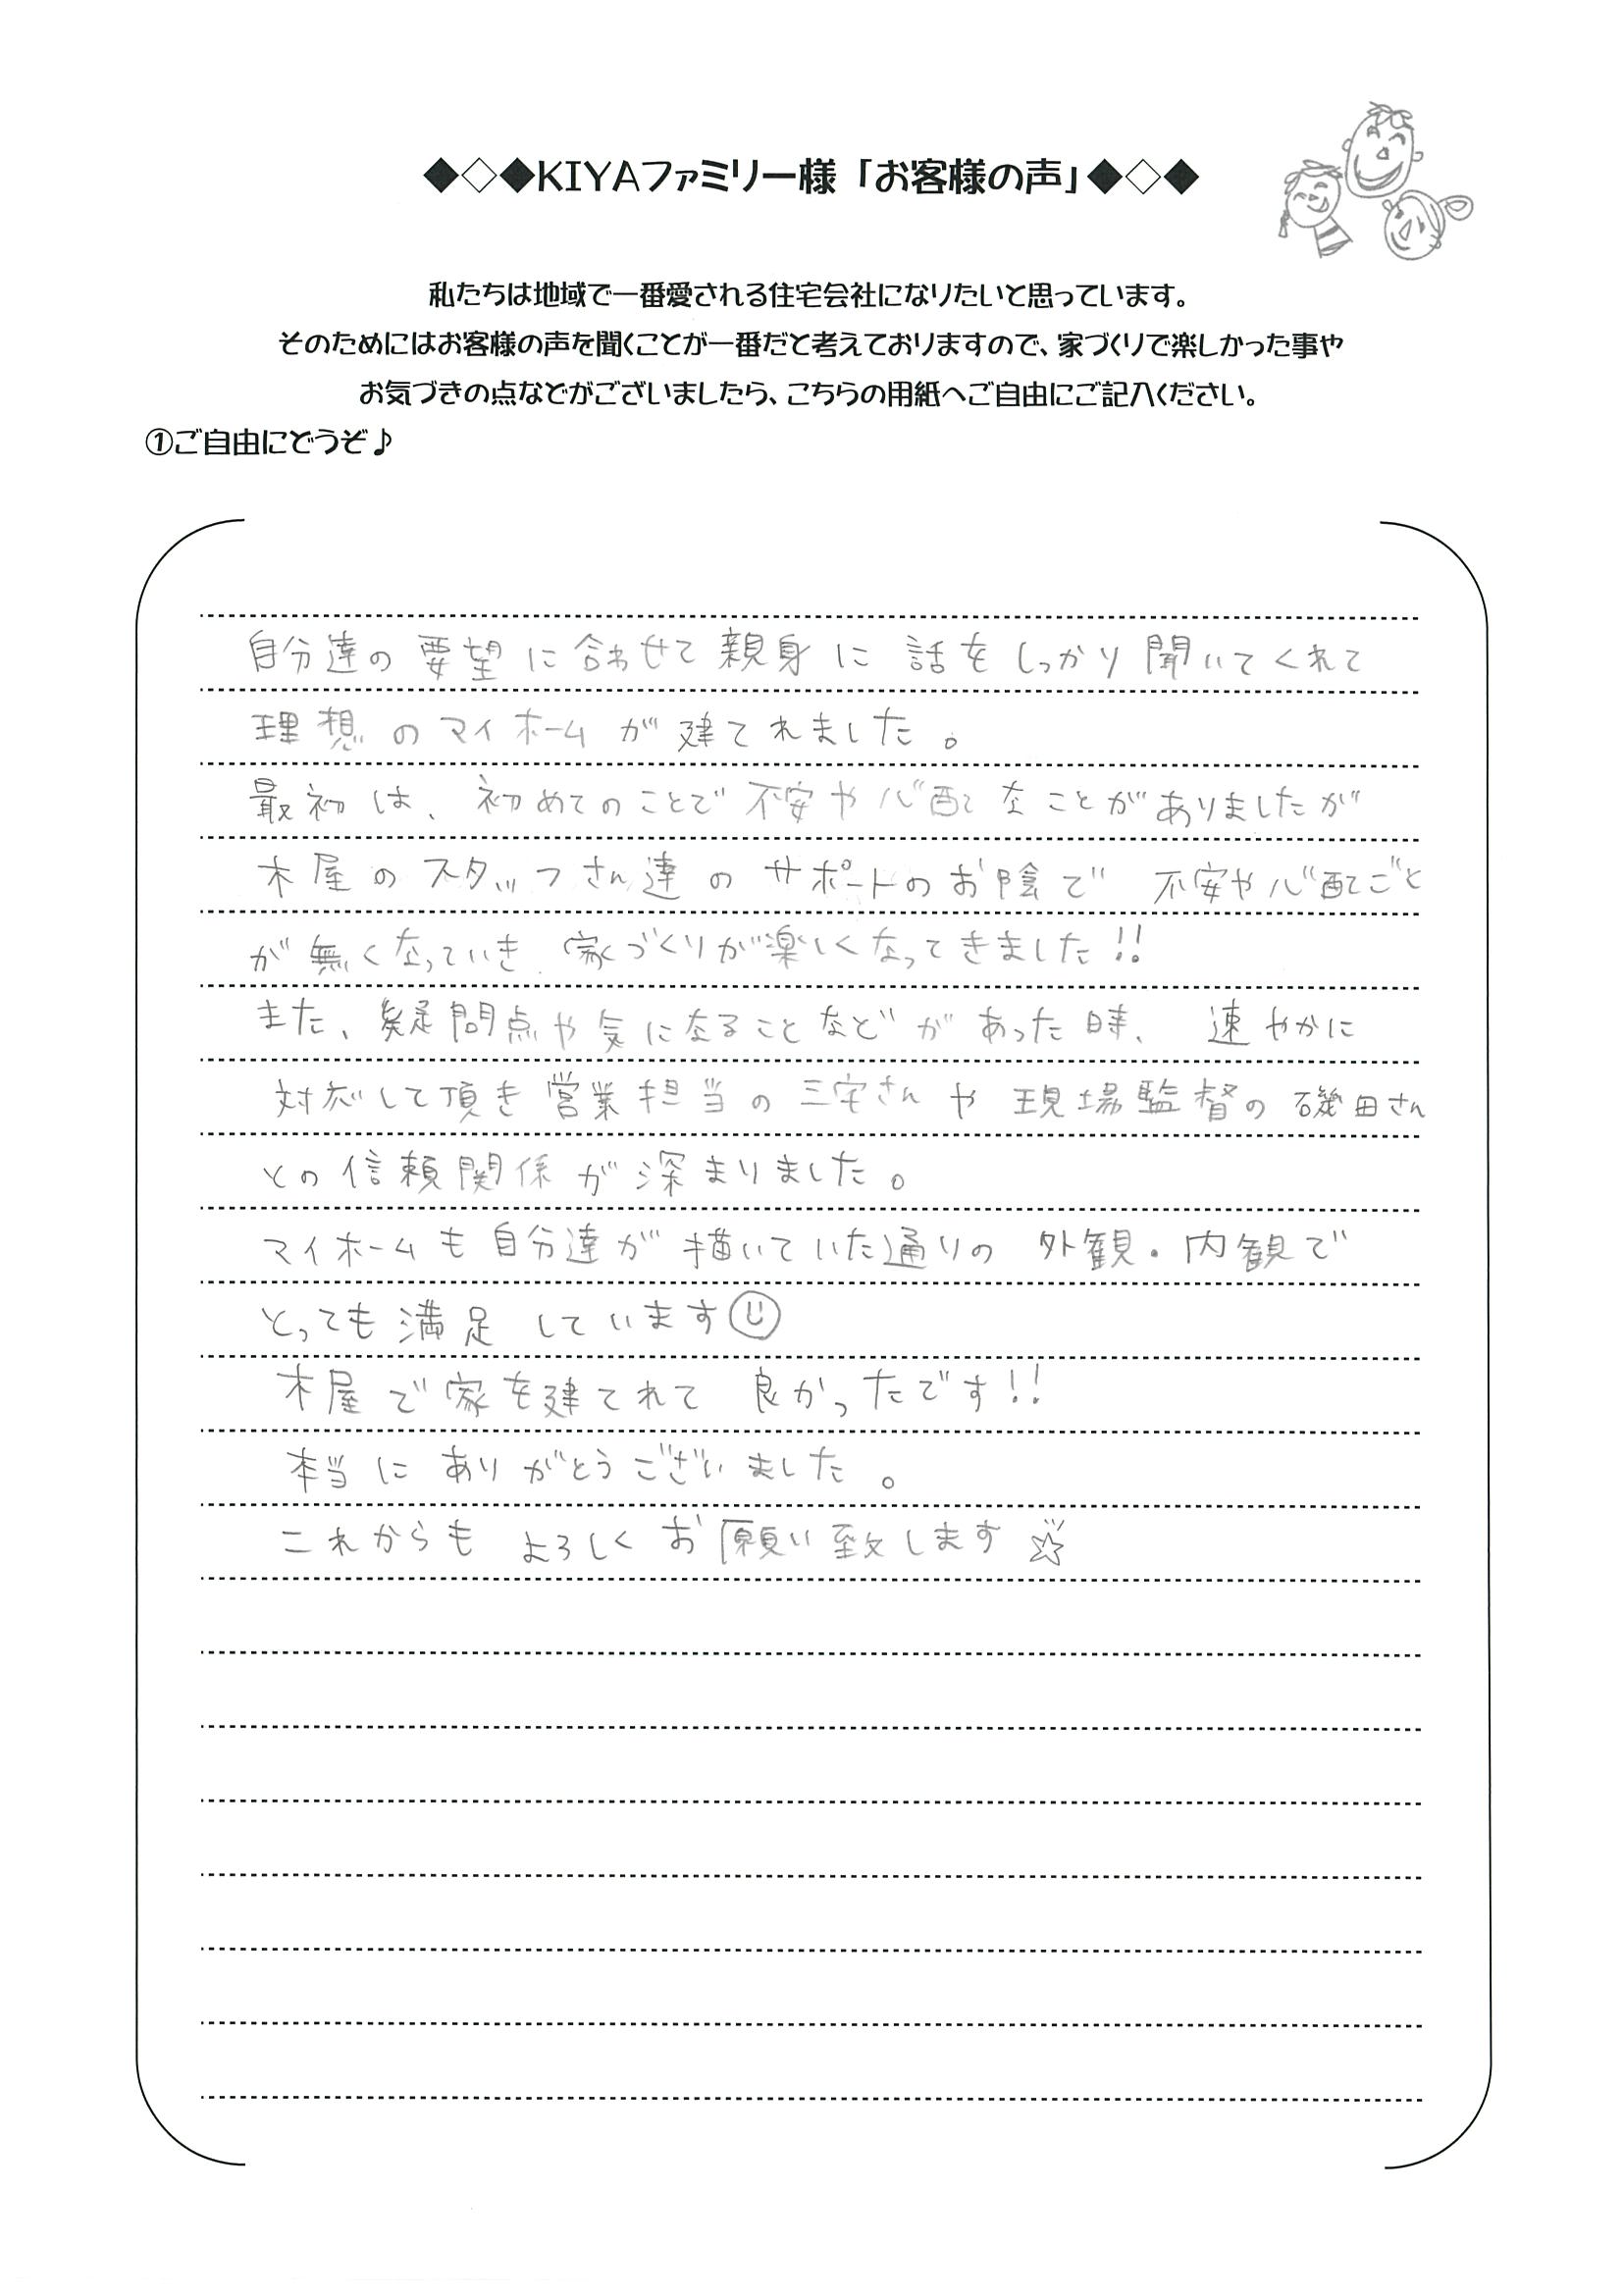 ◆◇◆KIYAファミリー様「お客様の声」◆◇◆
私たちは地域で一番愛される住宅会社になりたいと思っています。
そのためにはお客様の声を聞くことが一番だと考えておりますので、家づくりで楽しかった事や
お気づきの点などがございましたら、こちらの用紙へご自由にご記入ください。
①ご自由にどうぞ♪
自分達の要望に合わせて親身に話をしっかり聞いてくれて
理想のマイホームが建てれました。
最初は、初めてのことで不安や心配なことがありましたが
木屋のスタッフさん達のサポートのお陰で不安や心配ごと
が無くなっていき、家づくりが楽しくなってきました!!
また、疑問点や気になることなどがあった時、速やかに
対応して頂き営業担当の三宅さんや現場監督の磯田さん
との信頼関係が深まりました。
マイホームも自分達が描いていた通りの外観・内観で
とっても満足しています☺
木屋で家を建てれて良かったです!!
本当にありがとうございました。
これからもよろしくお願い致します☆